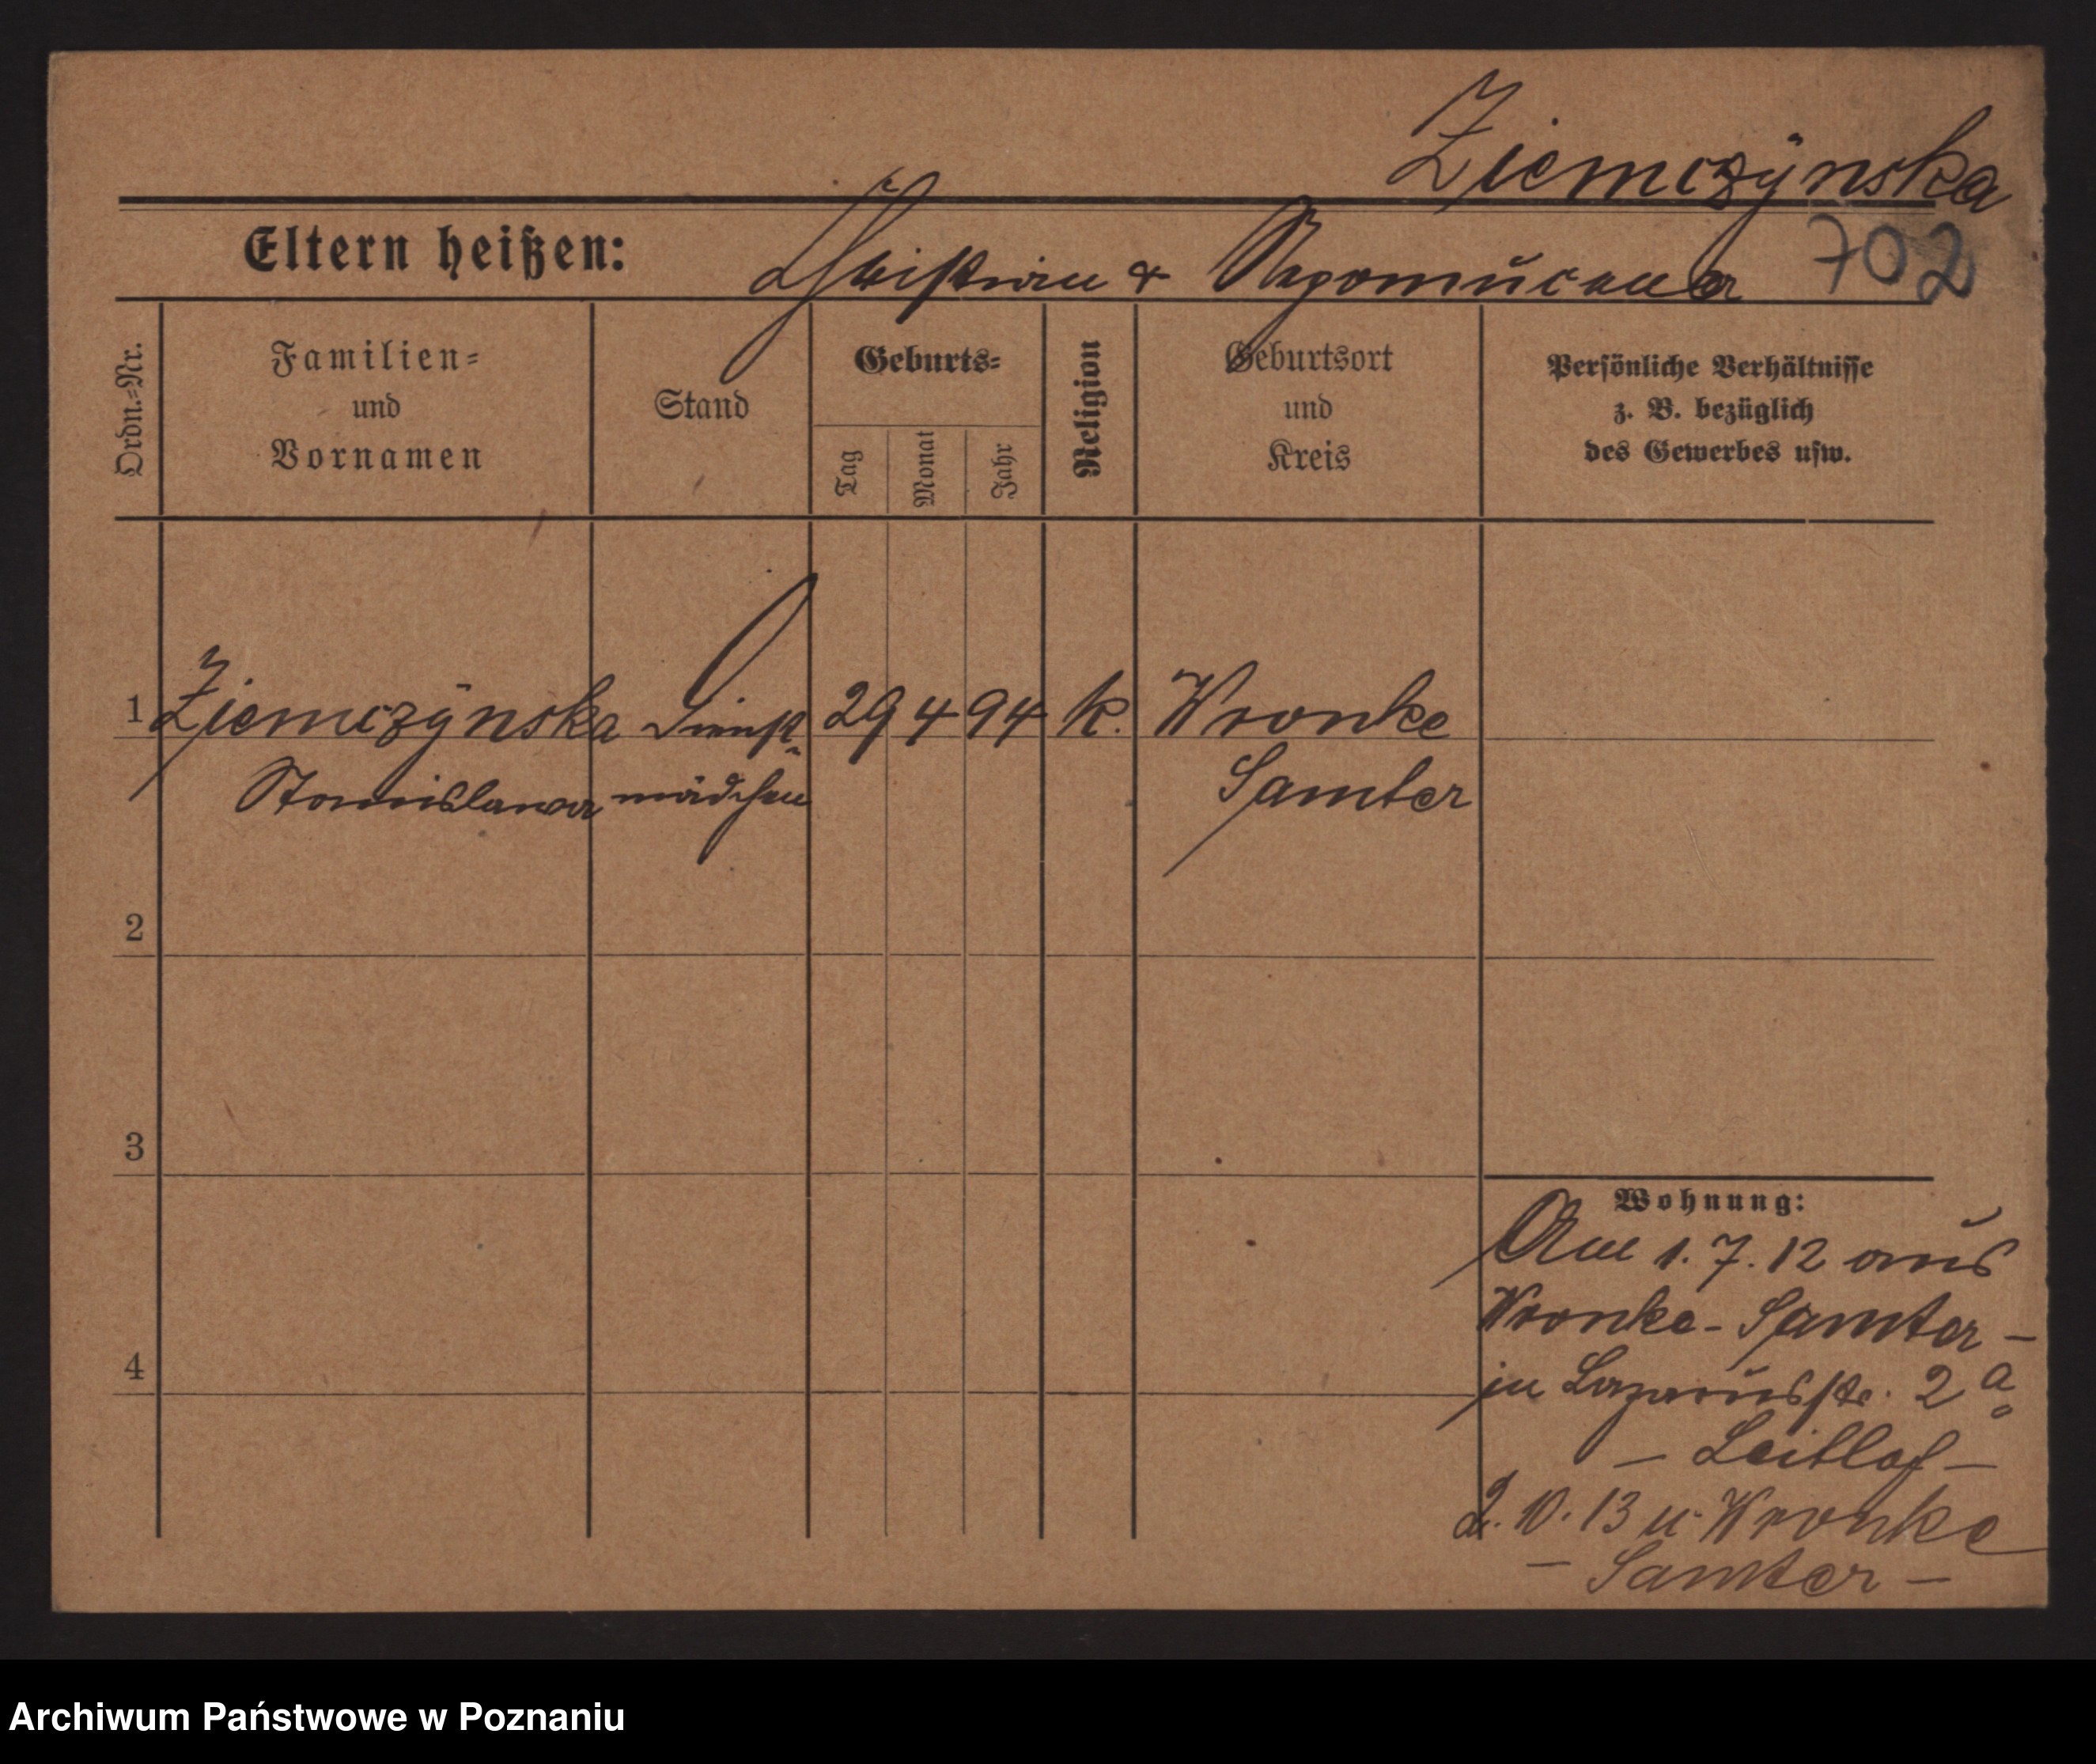 Ziemczÿnska
Eltern heißen: Christian & Nepomucena 702
Ordn.=Nr.
Familien=
und
Vornamen
Stand
Geburts=
Tag
Monat
Jahr
Religion
Geburtsort
und
Kreis
Persönliche Verhältnisse
z. B. bezüglich
des Gewerbes usw.
1 Ziemczÿnska Dienst= 29 4 94 k. Wronke
Stanislawa mädchen Samter
2
3
4
Wohnung:
Am 1. 7. 12 aus
Wronke - Samter -
in Lazarusstr. 2a
- Leitlof -
2. 10. 13 n. Wronke
- Samter -
Archiwum Państwowe w Poznaniu